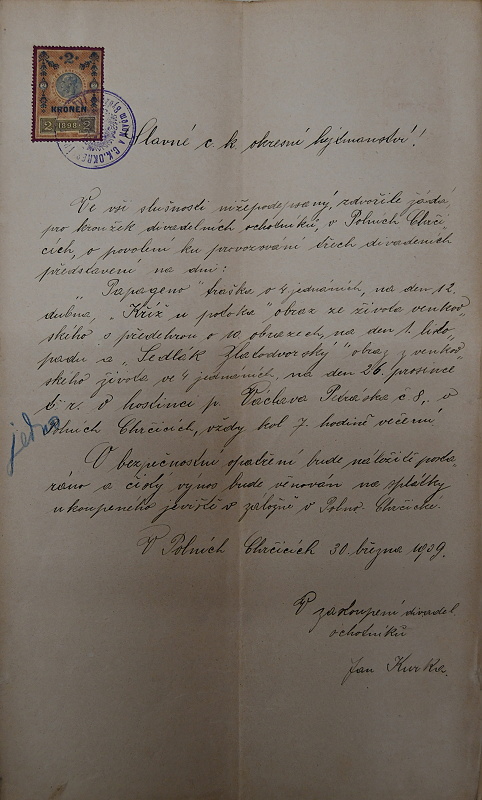 2
KRONEN
2 1898 2
C.K.OKRES
Slavné c. k. okresní hejtmanství!
Ve vší slušnosti nížepodepsaný, zdvořile žádá,
pro kroužek divadelních ochotníků, v Polních Chrči-
cích, o povolení ku provozování třech divadelních
představení na dni:
"Papageno" fraška o 4 jednáních, na den 12.
dubna, "Kříž u potoka" obraz ze života venkov-
ského s předehrou o 10. obrazech, na den 1. listo-
padu a "Sedlák Zlatodvorský" obraz z venkov-
ského života ve 4 jednáních, na den 26. prosince
t. r. v hostinci p. Václava Petráska č. 8., v
Polních Chrčicích, vždy kol 7. hodině večerní
O bezpečnostní opatření bude náležitě posta-
ráno a čistý výnos bude věnován na splátky
ukoupeného jeviště v záložně v Polno. Chrčické.
V Polních Chrčicích 30. března 1909.
V zastoupení divadel.
ochotníků
Jan Kurka.